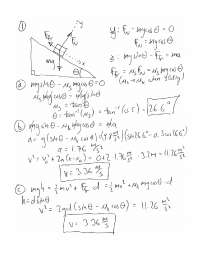 ①
+y
+x
F_N
F_fr
mg
θ
y: F_N - mg cosθ = 0
F_N = mg cosθ
x: mg sinθ - F_fr = ma
ⓐ mg sinθ - μ_s mg cosθ = 0
μ_s mg cosθ = mg sinθ
μ_s = tanθ
θ = tan⁻¹(μ_s) = tan⁻¹(0.5) = 26.6°
ⓑ mg sinθ - μ_k mg cosθ = ma
a = g(sinθ - μ_k cosθ) = (9.8 m/s²)(sin 26.6° - 0.3 cos 26.6°)
a = 1.76 m/s²
v² = v₀² + 2a(x-x₀) = 0 + 2·1.76 m/s²·3.2m = 11.26 m²/s²
v = 3.36 m/s
ⓒ mgh = ½mv² + F_fr d = ½mv² + μ_k mg cosθ·d
h = d sinθ
v² = 2gd(sinθ - μ_k cosθ) = 11.26 m²/s²
v = 3.36 m/s